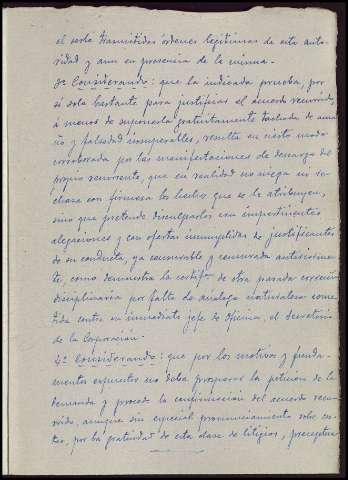 el serle transmitidas órdenes legítimas de esta auto-
ridad y aun en presencia de la misma.
3º Considerando: que la indicada prueba, por
sí sola bastante para justificar el acuerdo recurrido,
á menos de suponerla gratuitamente tachada de ama-
ño y falsedad insuperables, resulta en cierto modo
corroborada por las manifestaciones de descargo del
propio recurrente, que en realidad no niega ni re-
chaza con firmeza los hechos que se le atribuyen,
sino que pretende disculparlos con impertinentes
alegaciones y con ofertas incumplidas de justificantes
de su conducta, ya censurable y censurada anteriormen-
te, como demuestra la certifón de otra pasada corrección
disciplinaria por falta de análoga naturaleza come-
tida contra su inmediato jefe de oficina, el Secretario
de la Corporación.
4º Considerando: que por los motivos y funda-
mentos expuestos no debe prosperar la petición de la
demanda y procede la confirmación del acuerdo recu-
rrido, aunque sin especial pronunciamiento sobre cos-
tas, por la gratuidad de esta clase de litigios, preceptua-